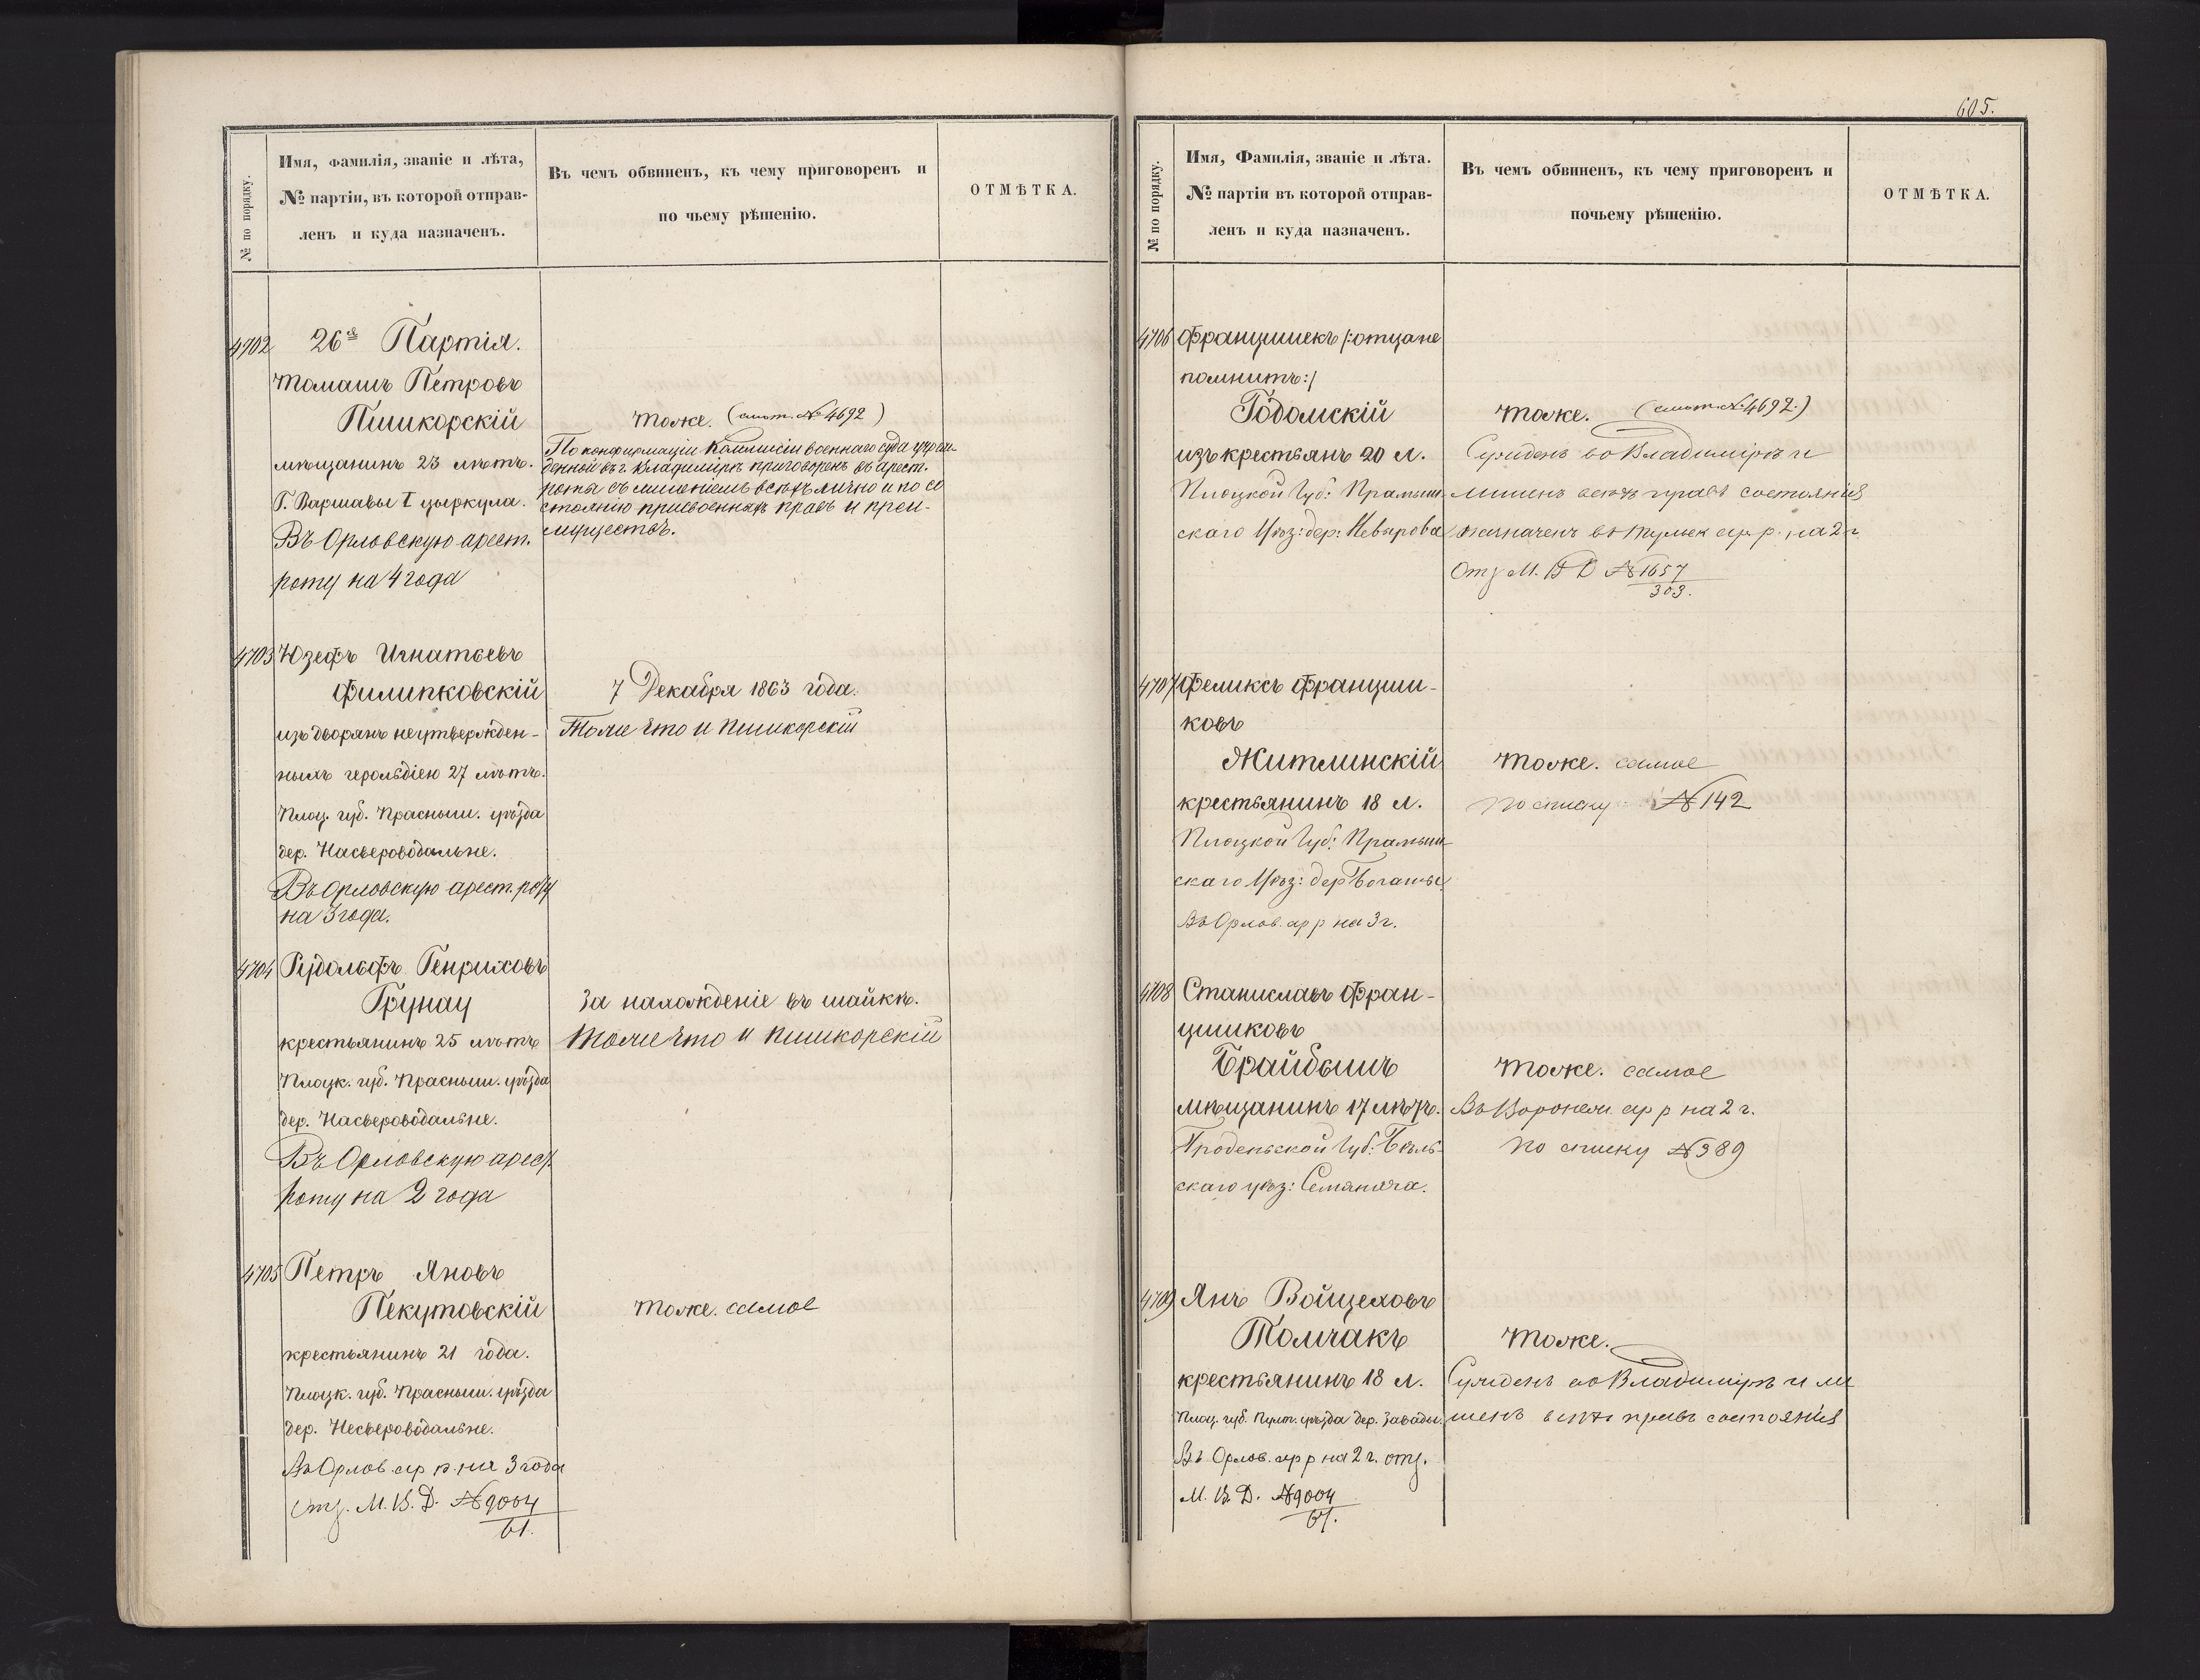 № по порядку.
Имя, фамилія, званіе и лѣта,
№ партіи, въ которой отправ-
ленъ и куда назначенъ.
Въ чемъ обвиненъ, къ чему приговоренъ и
по чьему рѣшенію.
ОТМѢТКА.
4702
26я Партія.
Томашъ Петровъ
Пишкорскій
мѣщанинъ 23 лѣтъ.
Г. Варшавы I цыркула.
Въ Орловскую арест.
роту на 4 года
тоже. (смот. № 4692)
По конфирмаціи Коммисіи военнаго суда учреж-
денной въ г. Владимірѣ приговоренъ въ арест.
роты съ лишеніемъ всѣхъ лично и по со
стоянію присвоенныхъ правъ и преи-
муществъ.
4703
Юзефъ Игнатьевъ
Филипковскій
изъ дворянъ неутвержден-
ныхъ герольдіею 27 лѣтъ.
Плоц. губ. Прасныш. уѣзда
дер. Насьероводальне.
Въ Орловскую арест. роту
на 3 года.
7 Декабря 1863 года.
Тоже что и Пишкорскій
4704
Рудольфъ Генриховъ
Грунау
крестьянинъ 25 лѣтъ
Плоцк. губ. Прасныш. уѣзда
дер. Насьероводальне.
Въ Орловскую арест.
роту на 2 года
За нахожденіе въ шайкѣ.
Тоже что и Пишкорскій
4705
Петръ Яновъ
Пекутовскій
крестьянинъ 21 года.
Плоцк. губ. Прасныш. уѣзда
дер. Несьероводальне.
Въ Орлов. ар р. на 3 года
Отз. М. В. Д. № 9004
61.
тоже. самое
605.
№ по порядку.
Имя, Фамилія, званіе и лѣта.
№ партіи въ которой отправ-
ленъ и куда назначенъ.
Въ чемъ обвиненъ, къ чему приговоренъ и
почьему рѣшенію.
ОТМѢТКА.
4706
Францишекъ /:отца не
помнитъ:/
Годомскій
изъ крестьянъ 20 л.
Плоцкой Губ: Прамыш
скаго Уѣз: дер: Невырова
тоже. (смот. № 4692.)
Сужденъ во Владимірѣ и
лишенъ всѣхъ правъ состоянія
назначенъ въ Тульск ар р. на 2 г
Отз М. В Д № 1657
303.
4707
Феликсъ Францши-
ковъ
Житлинскій
крестьянинъ 18 л.
Плоцкой Губ: Прамыш
скаго Уѣз: дер Богаты
Въ Орлов. ар р на 3 г.
тоже. самое
по списку № 142
4708
Станиславъ Фран-
цишковъ
Брайбышъ
мѣщанинъ 17 лѣтъ.
Гроденьской Губ: Бѣль-
скаго уѣз: Семянача.
тоже. самое
Въ Воронеж. ар р на 2 г.
по списку № 389
4709
Янъ Войцеховъ
Томчакъ
крестьянинъ 18 л.
Плоц. губ. Пулт. уѣзда дер. Завады.
Въ Орлов. ар р на 2 г. отз.
М. В. Д. № 9004
61.
тоже.
Сужденъ во Владимірѣ и ли
шенъ всѣхъ правъ состоянія